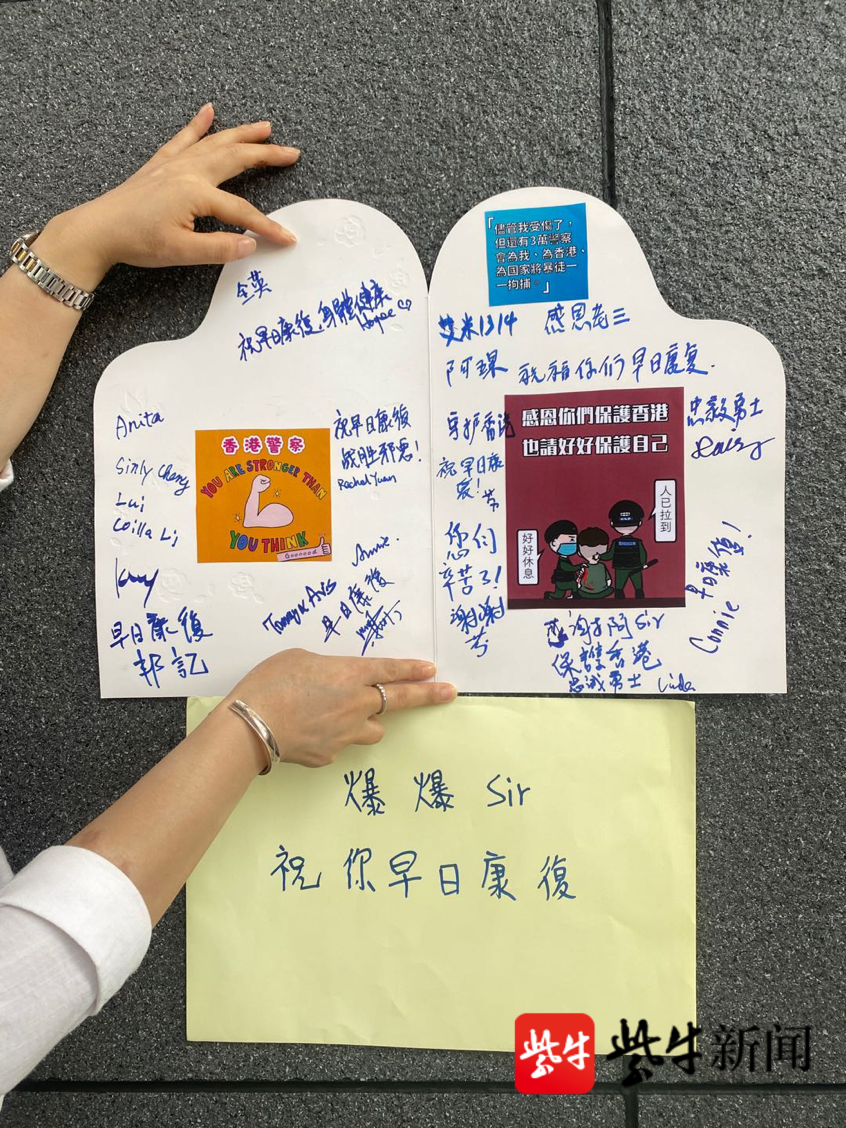 「儘管我受傷了，
但還有3萬警察
會為我、為香港、
為國家將暴徒一
一拘捕。」
全英
祝早日康復，身體健康
Hopee
艾米1314 感恩老三
阿珠 祝福你们早日康复.
Anita
Sinly Cheng
Lui
Loilla Li
祝早日康復
战胜邪恶！
Rachel Yuan
香港警察
YOU ARE STRONGER THAN
YOU THINK
Gooooood
Annie.
Tommy & Avis
早日康復
早日康復
邦記
守护香港
祝早日康
復！芳
感恩你們保護香港
也請好好保護自己
人已拉到
好好休息
忠毅勇士
您们
辛苦了！
谢谢
早日康復！
Connie
阿Sir
保護香港
忠誠勇士 Linda
爆爆 Sir
祝你早日康復
紫牛 紫牛新闻